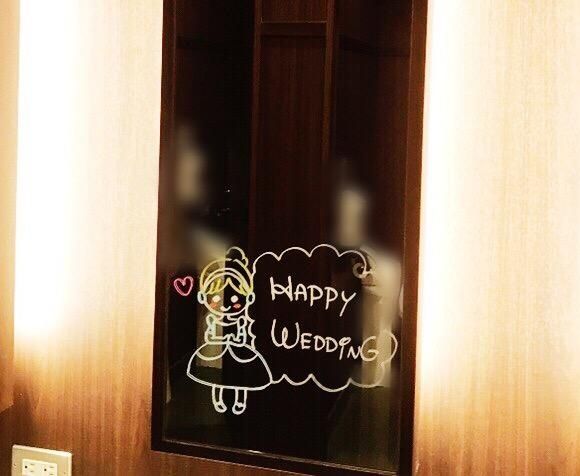 HAPPY
WEDDING